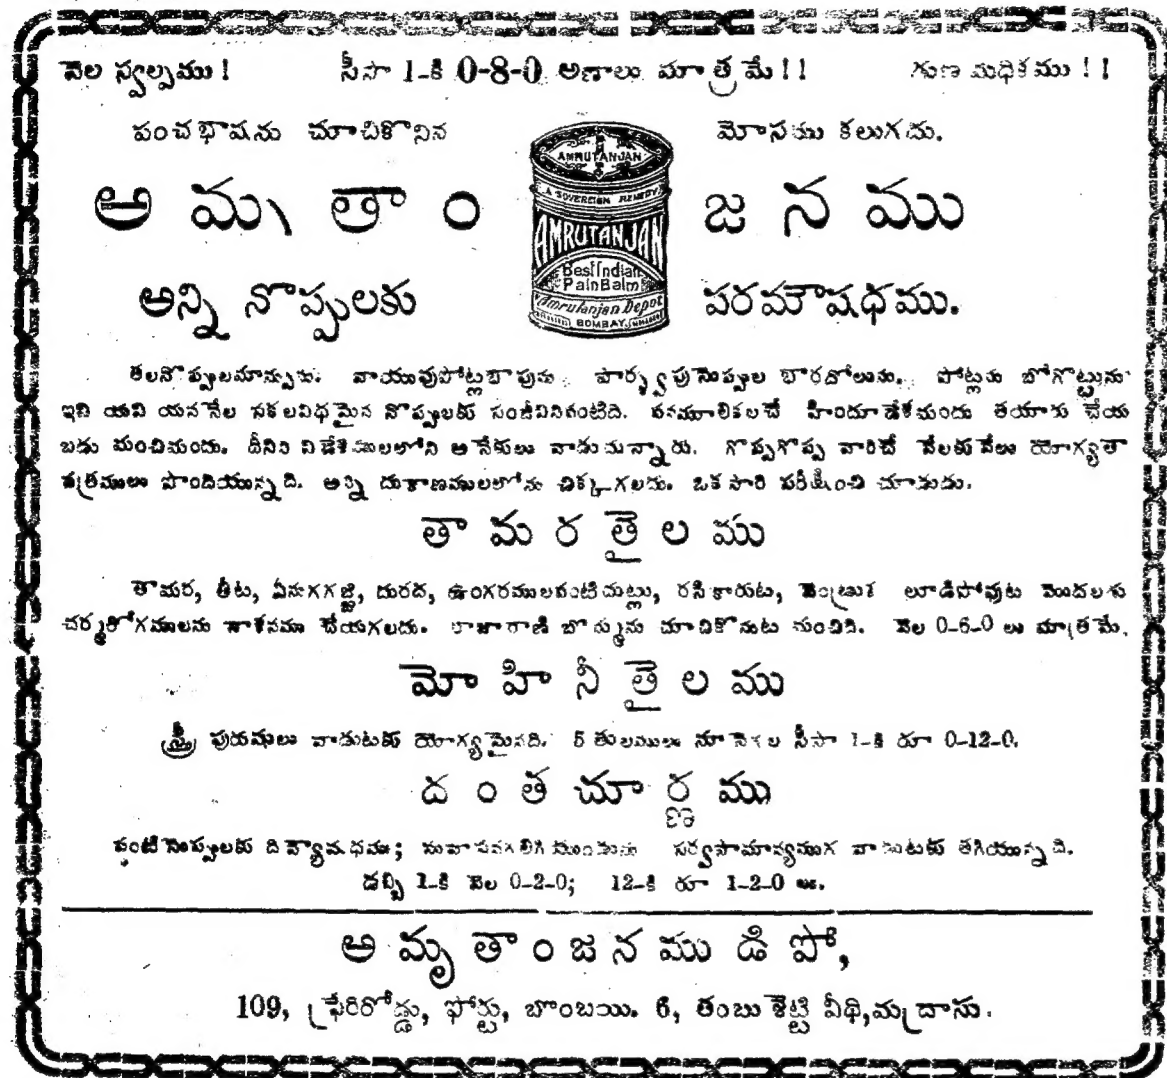 వెల స్వల్పము! సీసా 1-కి 0-8-0 అణాలు మాత్రమే!! గుణ మధికము!!
పంచభాషను చూచికొనిన మోసము కలుగదు.
AMRUTANJAN
A SOVEREIGN REMEDY
అమృతాంజనము
AMRUTANJAN
Best Indian
Pain Balm
అన్ని నొప్పులకు పరమౌషధము.
Amrutanjan Depot
BOMBAY
తలనొప్పులమాన్పును. వాయువుపోట్లబాపును. పార్శ్వపునొప్పుల బారదోలును. పోట్లను బోగొట్టును
ఇవి యవి యననేల సకలవిధమైన నొప్పులకు సంజీవినివంటిది. వనమూలికలచే హిందూదేశమందు తయారు చేయ
బడు మంచిమందు. దీనిని విదేశములలోని అనేకులు వాడుచున్నారు. గొప్పగొప్ప వారిచే వేలకువేలు యోగ్యతా
పత్రములు పొందియున్నది. అన్ని దుకాణములలోను చిక్కగలదు. ఒకసారి పరీక్షించి చూడుడు.
తామరతైలము
తామర, తీట, ఏనుగగజ్జి, దురద, ఉంగరములవంటిచుట్లు, రసికారుట, వెంట్రుక లూడిపోవుట మొదలగు
చర్మరోగములను నాశనము చేయగలదు. రాజారాణి బొమ్మను చూచికొనుట మంచిది. వెల 0-6-0 లు మాత్రమే.
మోహినీతైలము
స్త్రీ పురుషులు వాడుటకు యోగ్యమైనది. 5 తులములు నూనెగల సీసా 1-కి రూ 0-12-0.
దంతచూర్ణము
పంటినొప్పులకు దివ్యౌషధము; సువాసనగలిగియుండును సర్వసామాన్యముగ వాడుటకు తగియున్నది.
డబ్బి 1-కి వెల 0-2-0; 12-కి రూ 1-2-0 లు.
అమృతాంజనము డిపో,
109, ఫ్రేరిరోడ్డు, ఫోర్టు, బొంబయి. 6, తంబుశెట్టి వీథి, మద్రాసు.